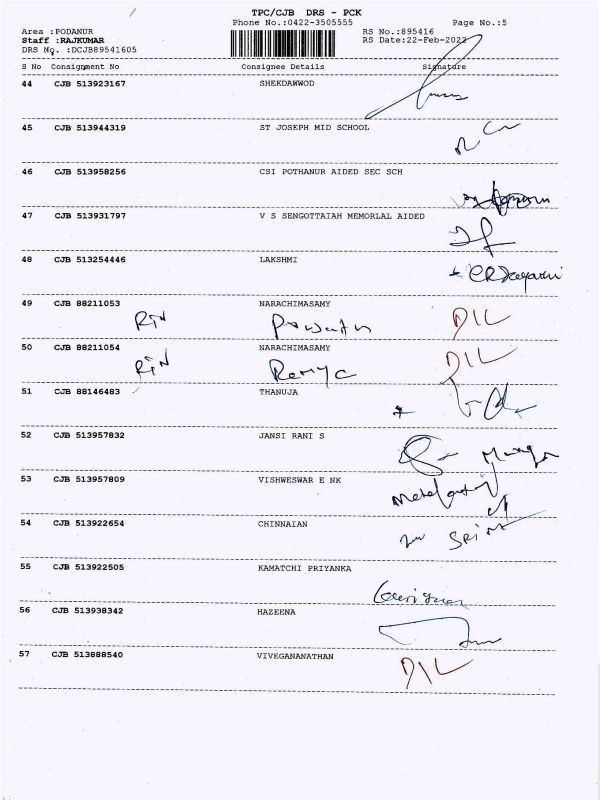 TPC/CJB DRS - PCK
Phone No.:0422-3505555 Page No.:5
Area :PODANUR RS No.:895416
Staff :RAJKUMAR RS Date:22-Feb-2022
DRS No. :DCJB89541605
S No Consignment No Consignee Details Signature
44 CJB 513923167 SHEKDAWWOD
45 CJB 513944319 ST JOSEPH MID SCHOOL
46 CJB 513958256 CSI POTHANUR AIDED SEC SCH
47 CJB 513931797 V S SENGOTTAIAH MEMORLAL AIDED
48 CJB 513254446 LAKSHMI
49 CJB 88211053 NARACHIMASAMY
RTN DIL
50 CJB 88211054 NARACHIMASAMY
RTN Remya DIL
51 CJB 88146483 THANUJA
52 CJB 513957832 JANSI RANI S
53 CJB 513957809 VISHWESWAR E NK
54 CJB 513922654 CHINNAIAN
55 CJB 513922505 KAMATCHI PRIYANKA
56 CJB 513938342 HAZEENA
57 CJB 513888540 VIVEGANANATHAN
DIL